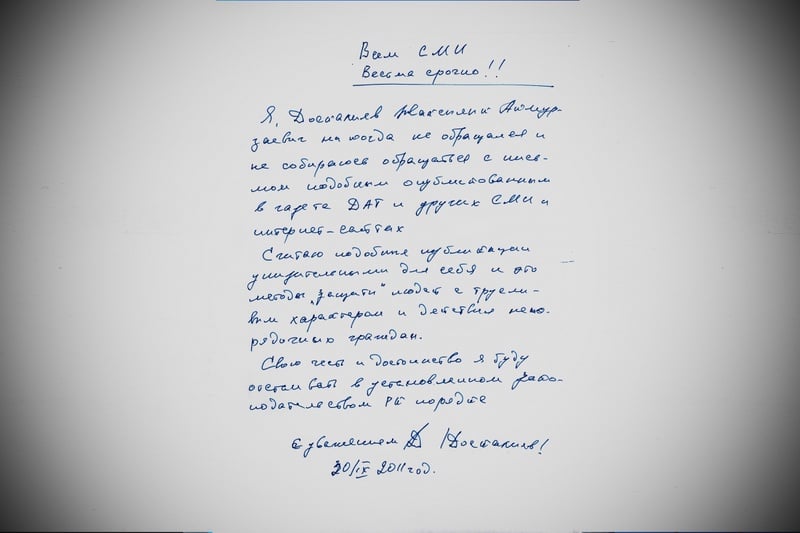 Всем СМИ
Весьма срочно!!
Я, Досталиев Жаксылык Аймур-
заевич никогда не обращался и
не собираюсь обращаться с пись-
мом подобным опубликованным
в газета ДАТ и других СМИ и
интернет-сайтах
Считаю подобные публикации
унизительными для себя и это
методы "защиты" людей с трусли-
вым характером и действия непо-
рядочных граждан.
Свою честь и достоинство я буду
отстаивать в установленном зако-
нодательством РК порядке
С уважением /Досталиев!
20/IX 2011 год.